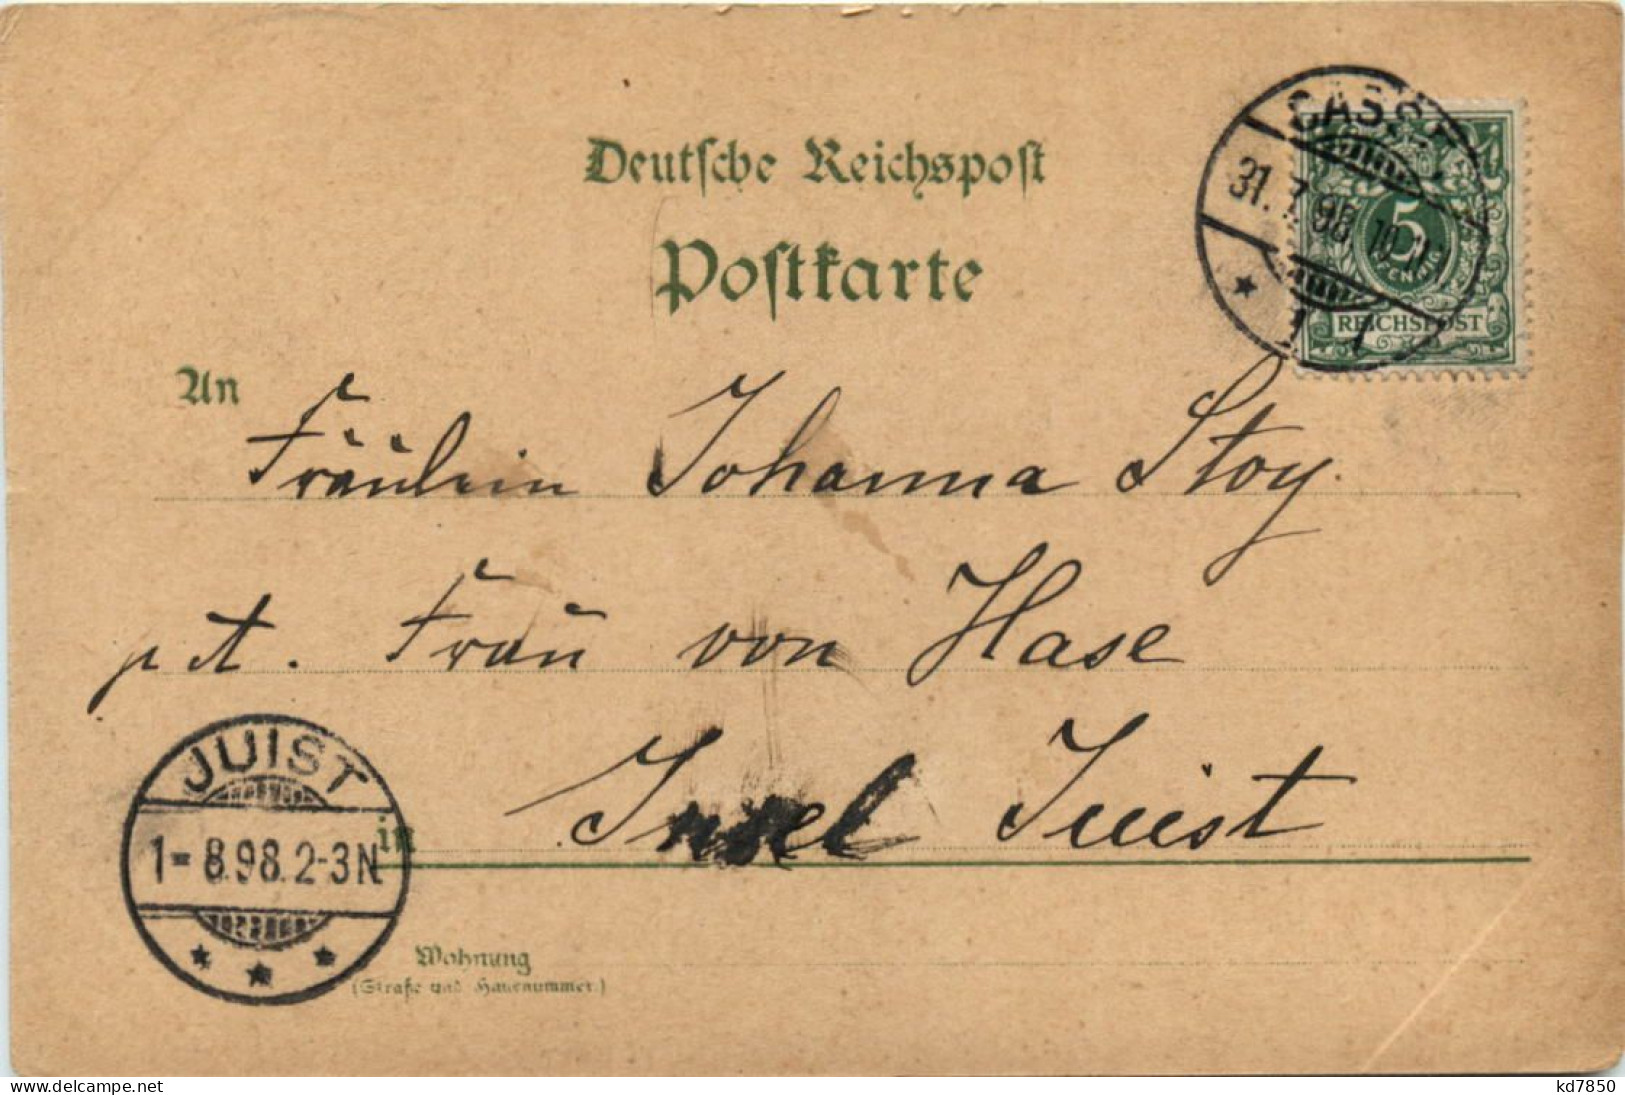 Deutsche Reichspost
Postkarte
CASSEL
31.7.98
1
5
PFENNIG
REICHSPOST
An
Fräulein Johanna Stoy.
p. A. Fraŭ von Hase
in Insel Juist
JUIST
1-8.98.2-3N
Wohnung
(Straße und Hausnummer.)
www.delcampe.net
kd7850